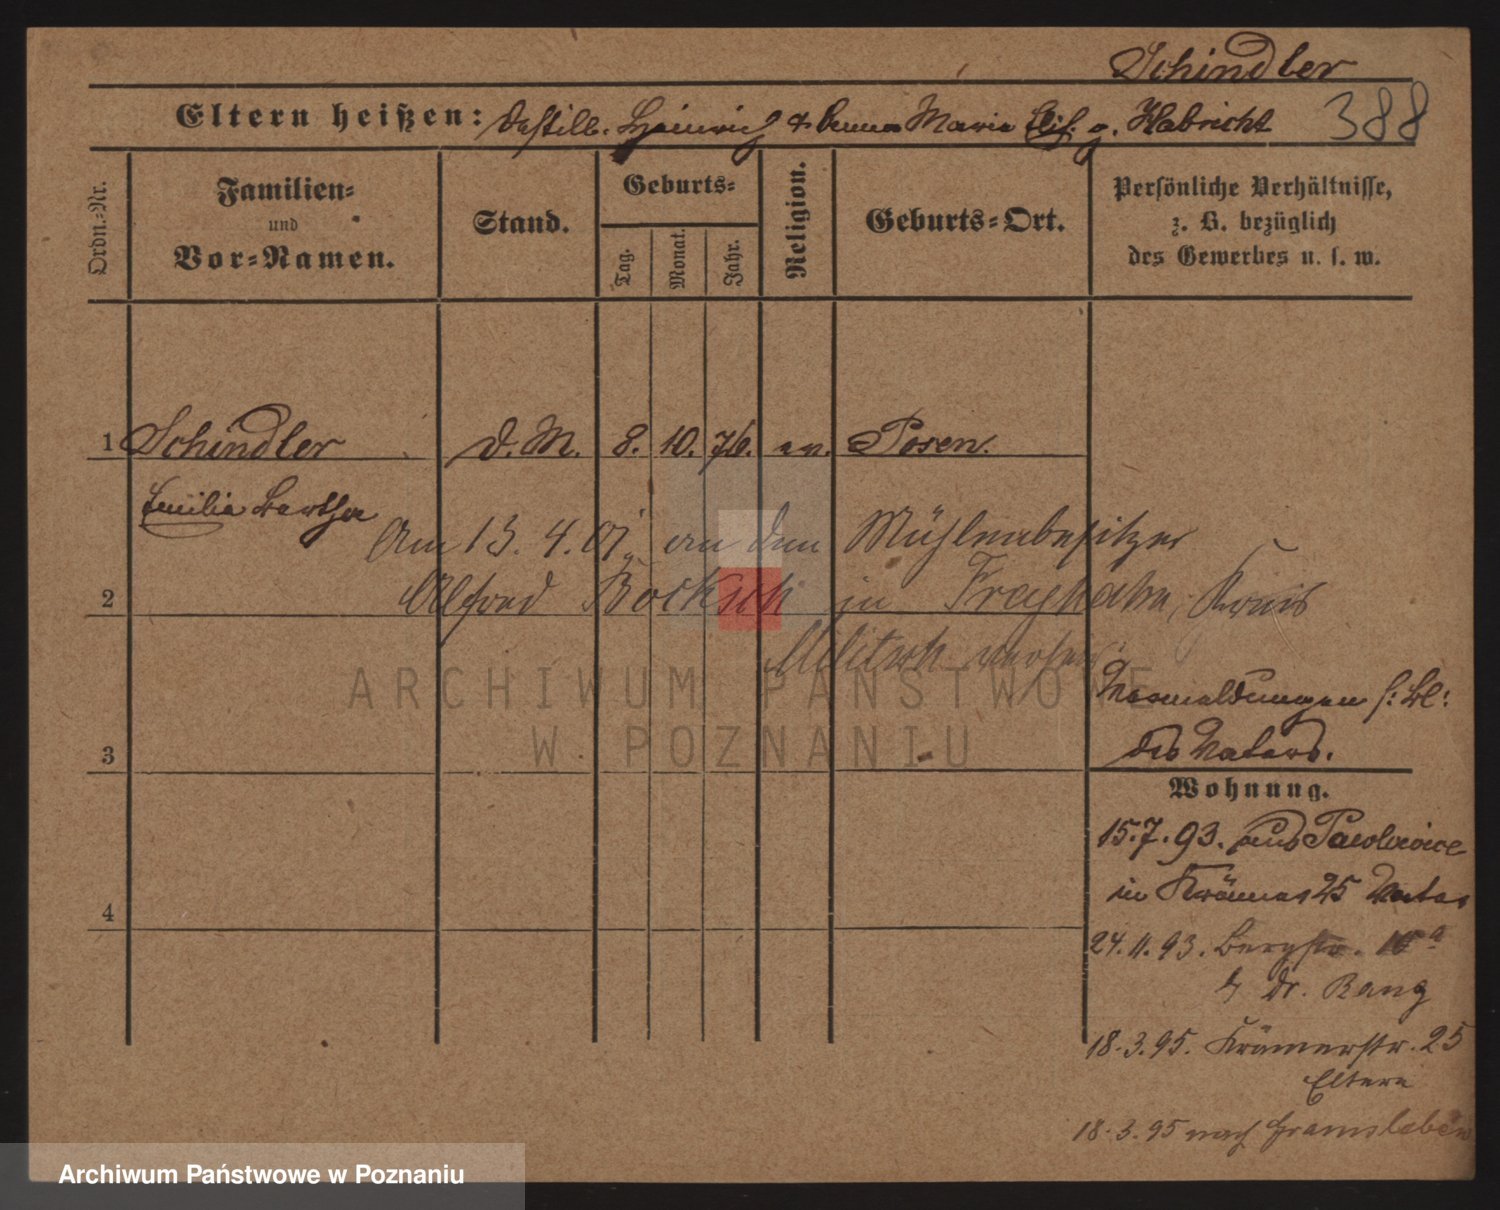 Schindler
388
Eltern heißen: Destill. Heinrich & Anna Maria Elis. g. Habricht
Ordn.-Nr.
Familien-
und
Vor-Namen.
Stand.
Geburts-
Tag.
Monat.
Jahr.
Religion.
Geburts-Ort.
Persönliche Verhältnisse,
z. B. bezüglich
des Gewerbes u. s. w.
1 Schindler D. M. 8. 10. 76. ev. Posen.
Emilie Bertha
Am 13. 4. 01. an den Mühlenbesitzer
2 Alfred in Freyhahn, Kreis
Militsch
ARCHIWUM PAŃSTWOWE
W POZNANIU
Vermeldungen s: Bl:
des Vaters.
3
Wohnung.
15.7.93. aus Pawlowice
in Krämer 25 Vater
4
24.11.93. Bergstr.
b Dr. Rang
18.3.95. Krämerstr. 25
Eltern
18.3.95 nach
Archiwum Państwowe w Poznaniu